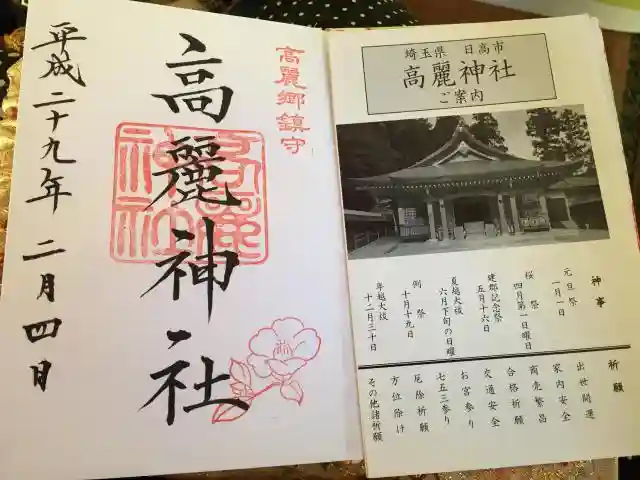 高麗郷鎮守
高麗神社
平成二十九年 二月四日
高麗神社
埼玉県 日高市
高麗神社
ご案内
神事
元旦祭
一月一日
桜祭
四月第一日曜日
建郡記念祭
五月十六日
夏越大祓
六月下旬の日曜
例祭
十月十九日
年越大祓
十二月三十日
祈願
出世開運
家内安全
商売繁昌
合格祈願
交通安全
お宮参り
七五三参り
厄除祈願
方位除け
その他諸祈願